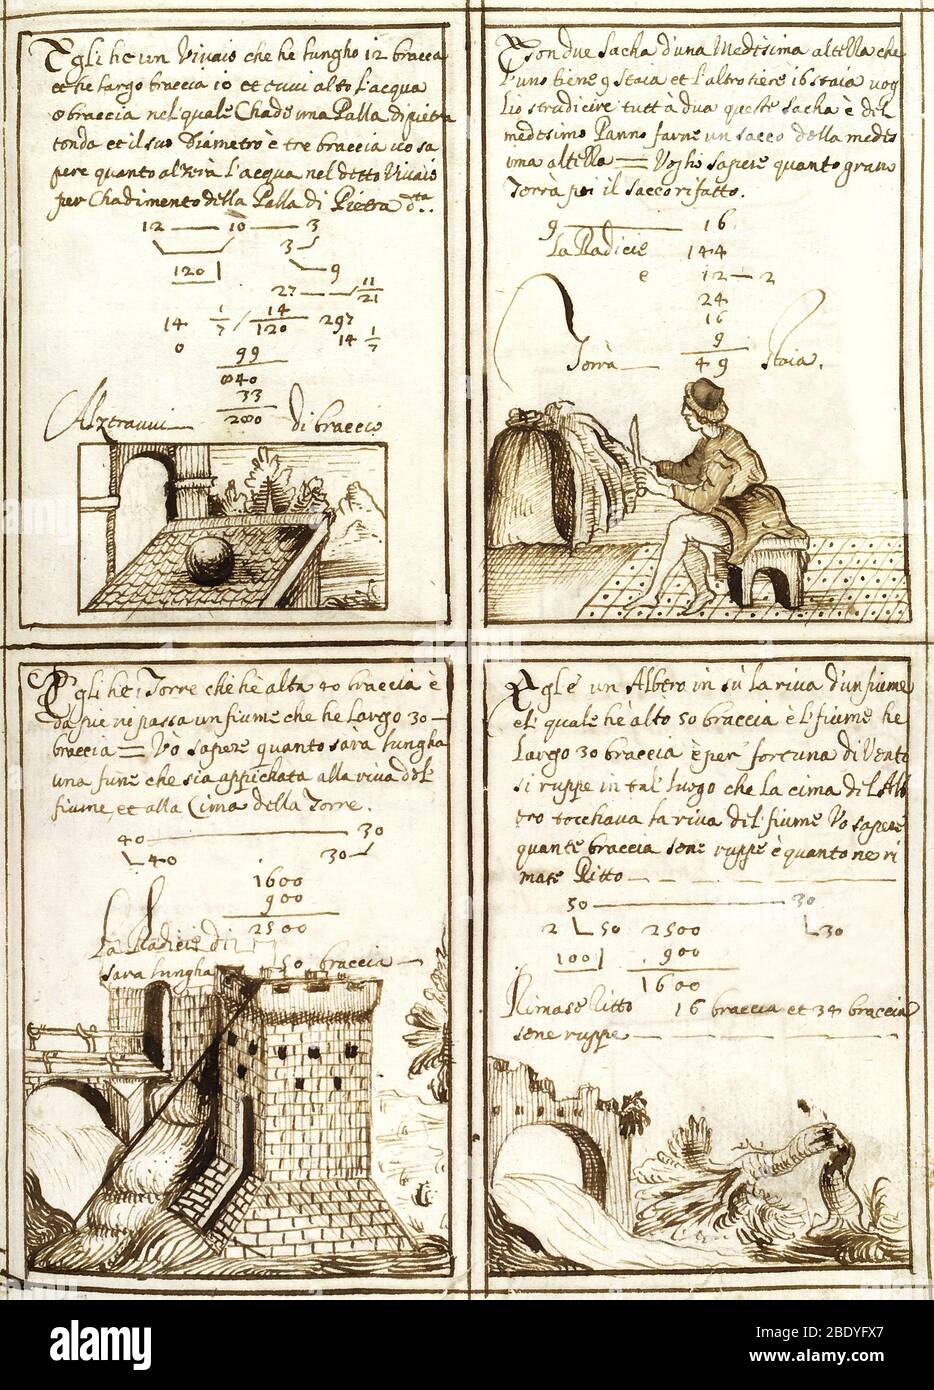 Egli he un Vivaio che he lungho 12 braccia
et he largo braccia 10 et evvi alto l'acqua
8 braccia nel quale Chade una Palla di pietra
tonda et il suo Diametro è tre braccia vo sa
pere quanto alzerà l'acqua nel ditto Vivaio
per Chadimento della Palla di Pietra d.ta
12 — 10 — 3
3
120
9
27 — 11/21
14 1/7 / 14/120 297
0 14 1/7
99
840
33
280
Alzerà di braccio
Son due Sacha d'una Medesima altella che
l'uno tiene 9 staia et l'altro tiene 16 staia vog
lio sdrucire tutt'à dua queste sacha è del
medesimo Panno farne un sacco della medes
ima altella = Voglio sapere quanto grano
Torrà poi il sacco rifatto.
9 — 16
La Radicie 144
e 12 — 2
24
16
9
Torrà — 49 staia.
Egli he 1 Torre che he alta 40 braccia è
da piè vi passa un fiume che he largo 30
braccia = Vo sapere quanto sarà lungha
una fune che sia appichata alla riva del
fiume, et alla Cima della Torre.
40 — 30
40 30
1600
900
2500
La Radicie di
sara lungha 50 braccia
Egl'è un Albero in sù la riva d'un fiume
el quale he alto 50 braccia è l'fiume he
Largo 30 braccia è per fortuna di Vento
si ruppe in tal luogo che la cima del Alb
ero tocchava la riva del fiume Vo sapere
quante braccia sene ruppe è quanto ne ri
mase Ritto
50 — 30
2 50 2500 30
100 900
1600
Rimase Ritto 16 braccia et 34 braccia
sene ruppe
alamy
Image ID: 2BDYFX7
www.alamy.com